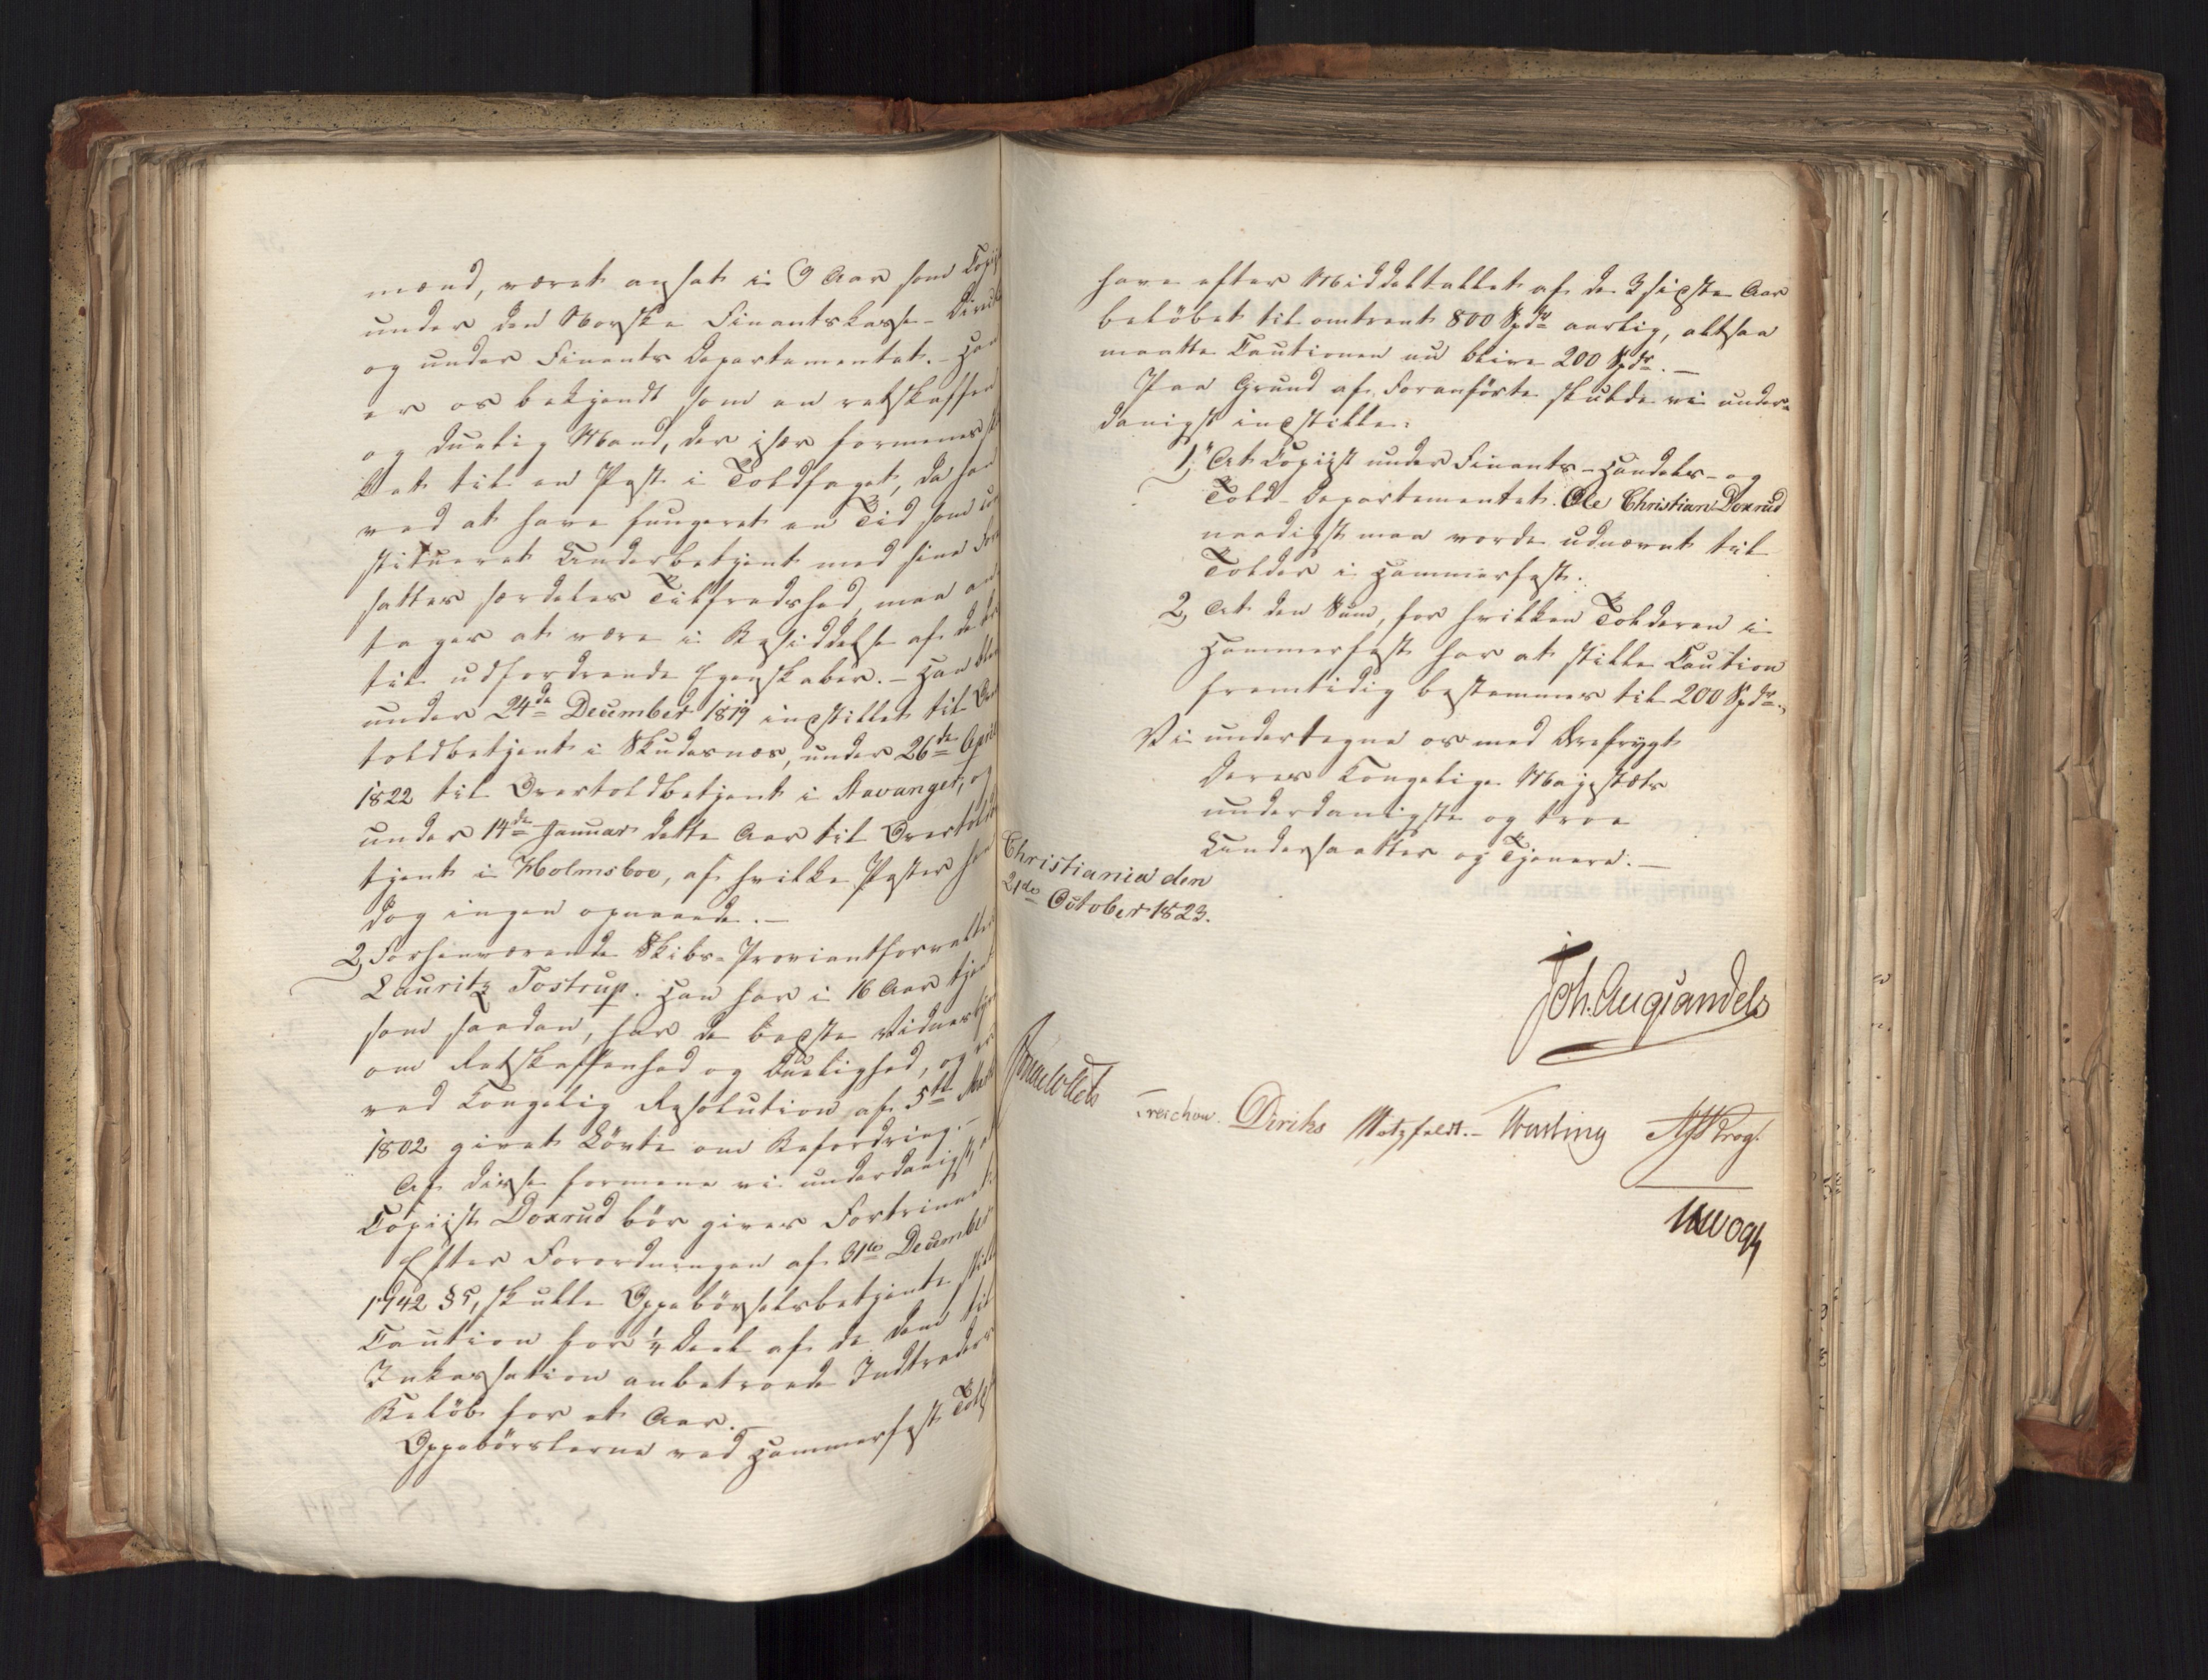 mænd, været ansat i 9 Aar som
under den Norske Finantskasse-
og under Finants Departementet. – Han
er os bekjendt som en retskaffen
og duelig Mand, der især formenes
ket til en Post i Toldfaget, da han
ved at have fungeret en Tid som
stitueret Underbetjent med sine
satters særdeles Tilfredshed, maa
tages at være i Besiddelse af de
til udfordrende Egenskaber. – Han
under 24de December 1819 indstillet til
toldbetjent i Skudesnæs, under 26de April
1822 til Overtoldbetjent i Stavanger, og
under 14de Januar dette Aar til
tjent i Holmsboe, af hvilke Poster han
dog ingen opnaaede. –
2, Forhenværende Skibs-Proviantforvalter
Lauritz Tostrup. Han har i 16 Aar tjent
som saadan, har de bedste
om Retskaffenhed og Duelighed, og er
ved Kongelig Resolution af 5te
1802 givet Løvte om Befordring. –
Af disse formene vi underdanigst,
Copiist Doxrud bør gives Fortrinnet.
Efter Forordningen af 31te December
1742 § 5, skulle Oppebørselsbetjente stille
Caution for 1/4 Deel af de dem til
Inkassation anbetroede Indtraders
Beløb for et Aar. –
Oppebørslerne ved Hammerfest
have efter Middeltallet af de 3 sidste Aar
beløbet til omtrent 800 Spdr aarlig, altsaa
maatte Cautionen nu blive 200 Spdr. –
Paa Grund af Foranførte skulde vi under-
danigst indstille:
1, At Copiist under Finants-Handels- og
Told-Departementet Ole Christian Doxrud
naadigst maa vorde udnævnt til
Tolder i Hammerfest.
2, At den Sum, for hvilken Tolderen i
Hammerfest har at stille Caution
fremtidig bestemmes til 200 Spdr.,
Vi undertegne os med Ærefrygt
Deres Kongelige Majestæts
underdanigste og troe
Undersaatter og Tjenere. –
Christiania den
21de October 1823.
Joh. Aug. Sandels
Jonas Collett
Treschow. Diriks Motzfeldt. – Fasting Krog.
Vogt